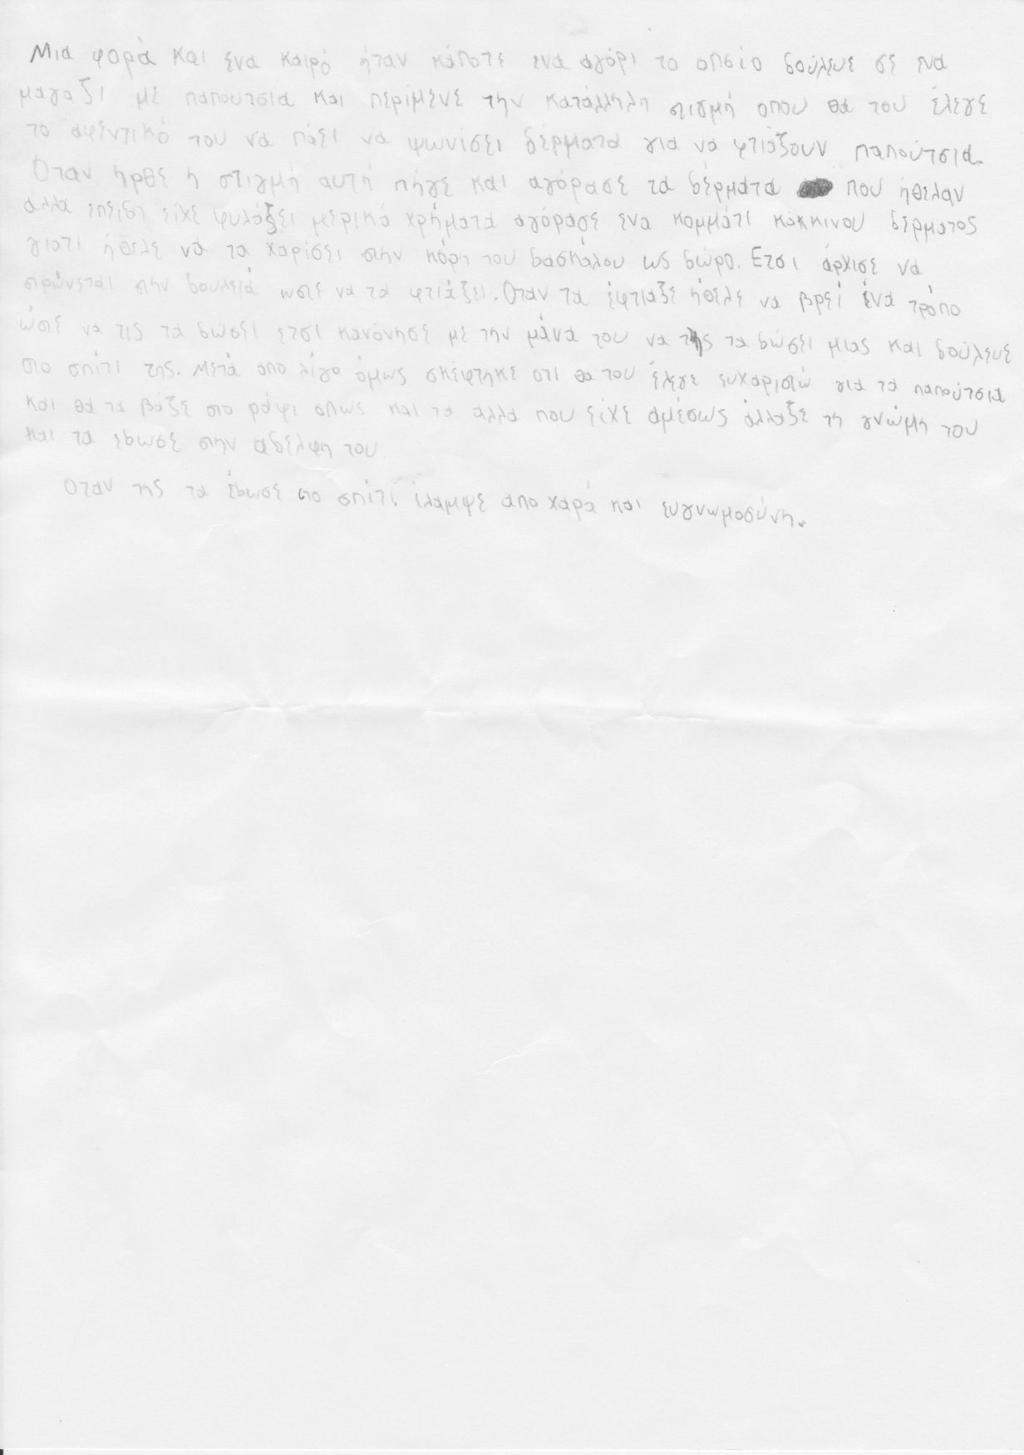 Μια φορά και ένα καιρό ήταν κάποτε ενα αγόρι το οποίο δούλευε σε να
μαγαζι με παπουτσια και περίμενε την κατάλληλη στιγμή οπου θα του έλεγε
το αφεντικό του να πάει να ψωνίσει δέρματα για να φτιάξουν παπούτσια.
Οταν ήρθε η στιγμή αυτή πήγε και αγόρασε τα δέρματα που ήθελαν
αλλα επειδη είχε φυλάξει μερικά χρήματα αγόρασε ενα κομμάτι κόκκινου δέρματος
γιατι ήθελε να τα χαρίσει στην κόρη του δασκάλου ως δώρο. Ετσι άρχισε να
στρώνεται στην δουλειά ωστε να τα φτιάξει. Οταν τα έφτιαξε ήθελε να βρεί ένα τρόπο
ώστε να τις τα δώσει ετσι κανόνησε με την μάνα του να της τα δώσει μιας και δούλευε
στο σπίτι της. Μετά απο λίγο όμως σκέφτηκε οτι θα του έλεγε ευχαριστώ για τα παπούτσια
και θα τα βαζε στο ράφι οπως και τα αλλα που είχε αμέσως άλλαξε τη γνώμη του
και τα εδωσε στην αδελφη του
Οταν της τα έδωσε στο σπίτι έλαμψε απο χαρά και ευγνωμοσύνη.